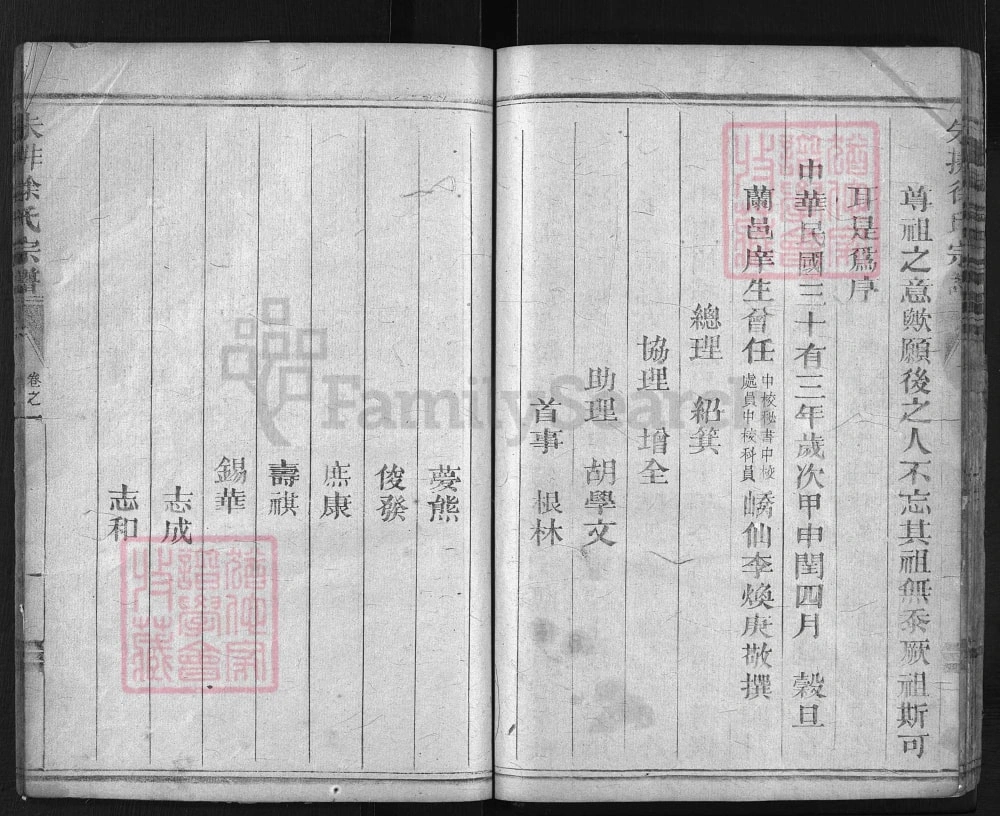 尊祖之意歟願後之人不忘其祖無忝厥祖斯可
耳是爲序
中華民國三十有三年歲次甲申閏四月 穀旦
蘭邑庠生曾任中校秘書中校處員中校科員嶠仙李煥庚敬撰
總理 紹箕
協理 增全
助理 胡學文
首事 根林
夢熊
俊發
庶康
壽祺
錫華
志成
志和
徐氏宗譜
卷之一
FamilySearch